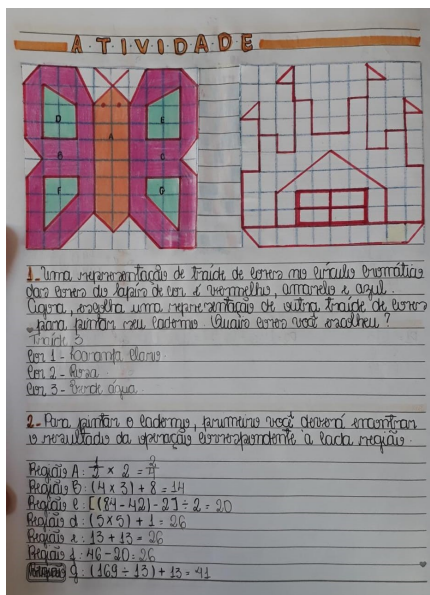 A·T·I·V·I·D·A·D·E
D E
A
B C
F G
1- Uma representação de traíde de cores no círculo cromático
das cores do lápis de cor é vermelho, amarelo e azul.
Agora, escolha uma representação de outra traíde de cores
para pintar seu caderno. Quais cores você escolheu?
Traíde 3
Cor 1 - laranja claro.
Cor 2 - Rosa
Cor 3 - Verde água.
2- Para pintar o caderno, primeiro você deverá encontrar
o resultado da operação correspondente a cada região.
Região A: × 2 =
Região B: (4 x 3) + 8 = 14
Região c: [(84 - 42) - 2] ÷ 2 = 20
Região d: (5x5) + 1 = 26
Região e: 13 + 13 = 26
Região f: 46 - 20 = 26
Região g: (169 ÷ 13) + 13 = 41